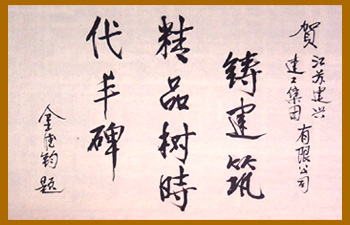 賀
江苏建兴
建工集团有限公司
铸建筑
精品树時
代丰碑
金德钧题